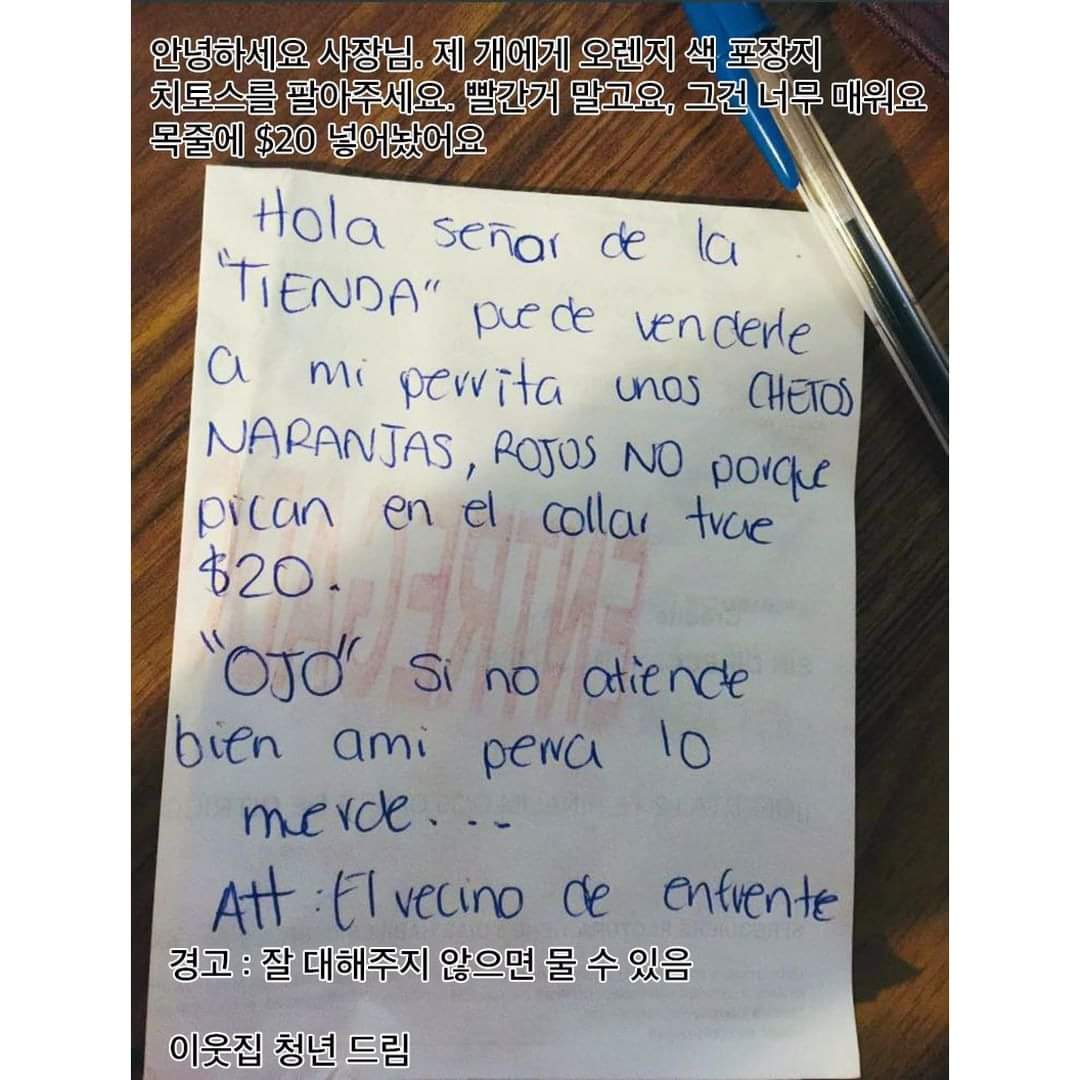 안녕하세요 사장님. 제 개에게 오렌지 색 포장지
치토스를 팔아주세요. 빨간거 말고요, 그건 너무 매워요
목줄에 $20 넣어놨어요
Hola señor de la
"TIENDA" puede venderle
a mi perrita unos CHETOS
NARANJAS, ROJOS NO porque
pican en el collar trae
$20.
"OJO" Si no atiende
bien ami perra lo
merde...
Att : El vecino de enfrente
경고 : 잘 대해주지 않으면 물 수 있음
이웃집 청년 드림